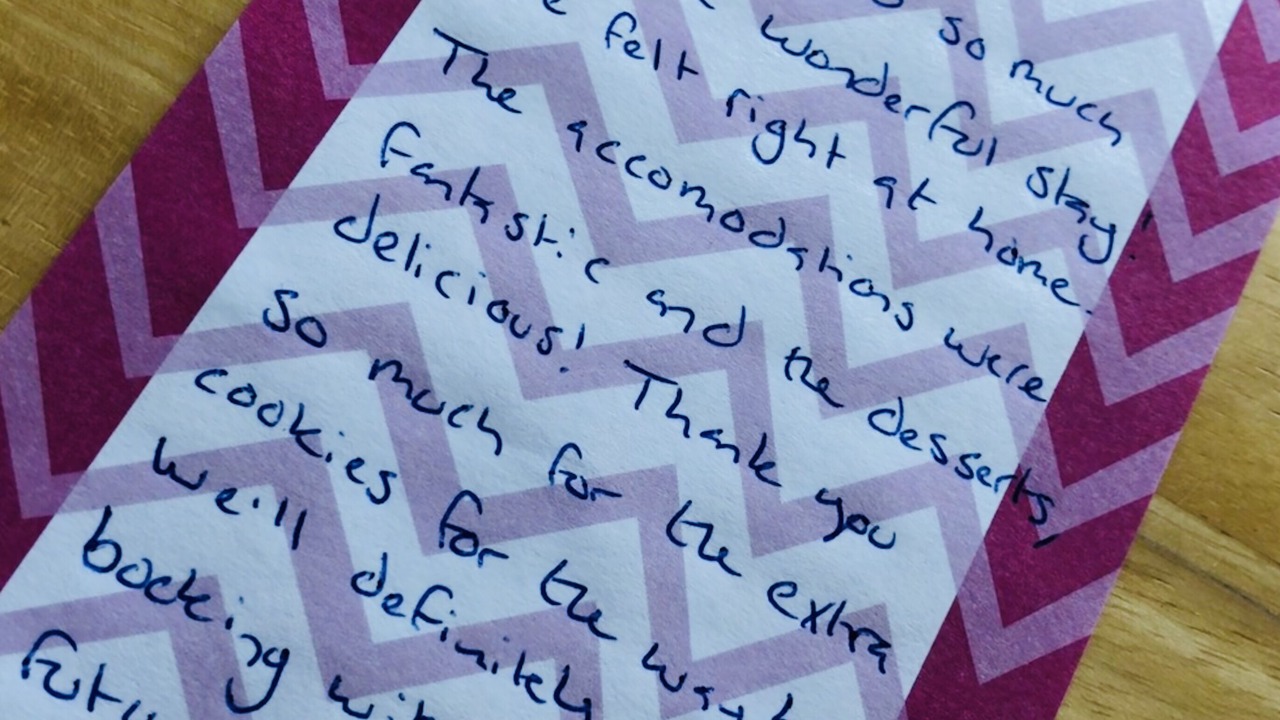 so much
wonderful stay!
felt right at home.
The accomodations were
fantastic and the desserts,
delicious! Thank you
so much for the extra
cookies for the way
We'll definitely
booking